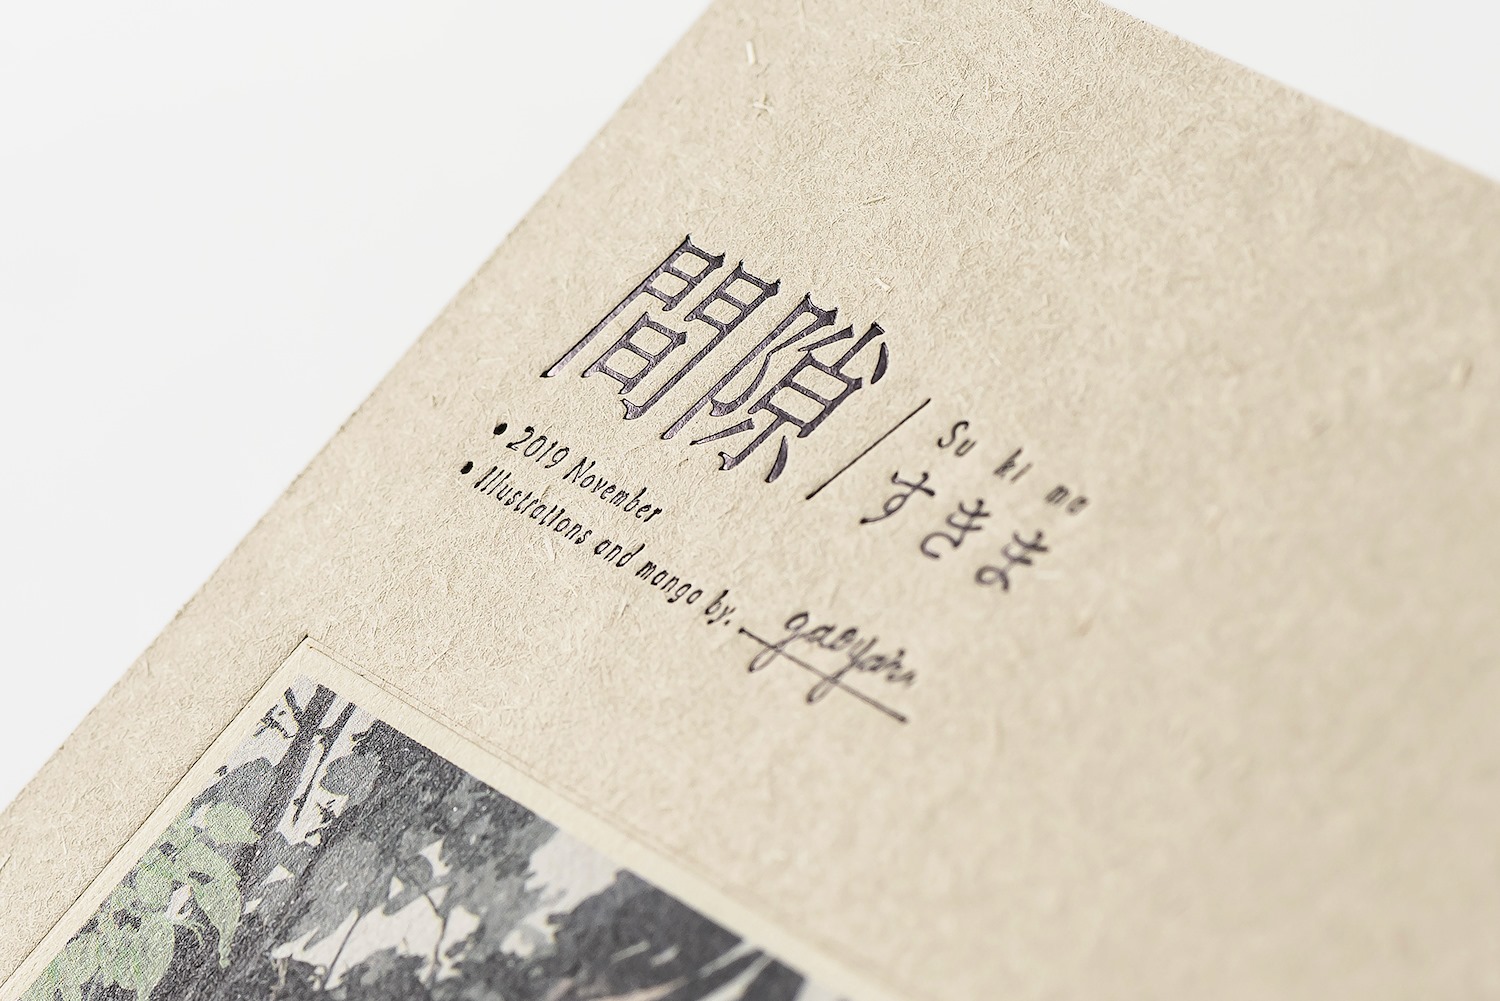 間隙
Su ki ma
すきま
• 2019 November
• Illustrations and manga by.
gaoyan